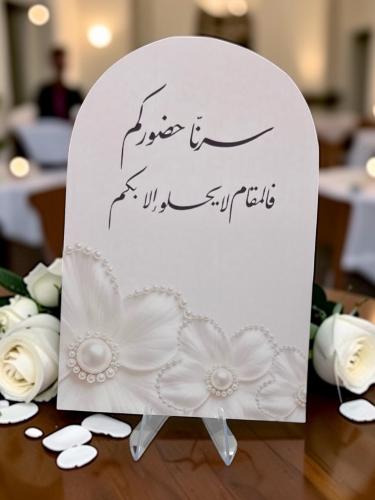 سرنّا حضوركم
فالمقام لا يحلو إلا بكم